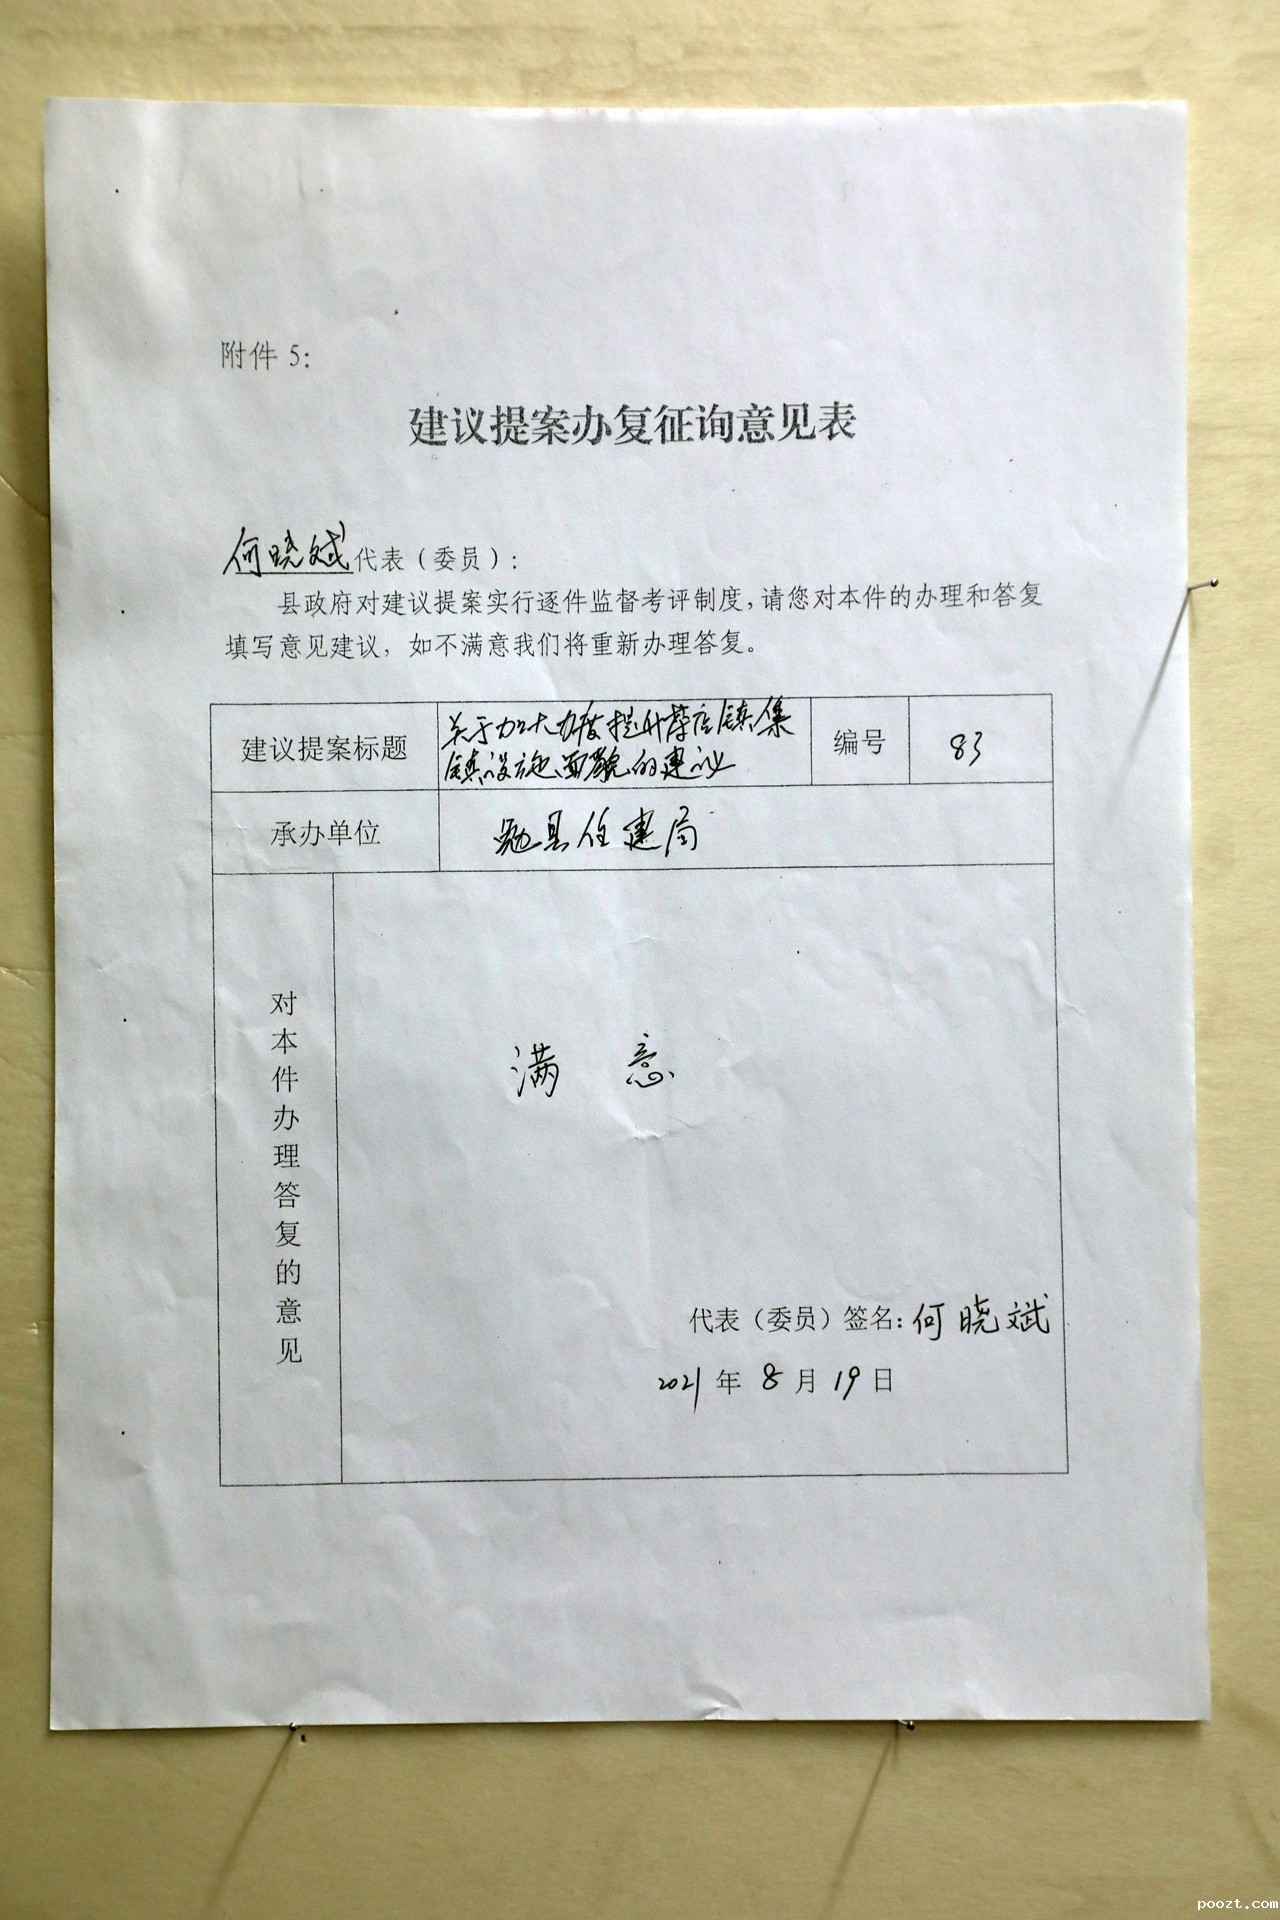 附件 5：
建议提案办复征询意见表
何晓斌代表（委员）：
县政府对建议提案实行逐件监督考评制度，请您对本件的办理和答复
填写意见建议，如不满意我们将重新办理答复。
建议提案标题
关于加大力度提升茶店镇集
镇设施、面貌的建议
编号
83
承办单位
勉县住建局
对本件办理答复的意见
满 意
代表（委员）签名：何晓斌
2021 年 8 月 19 日
poozt.com